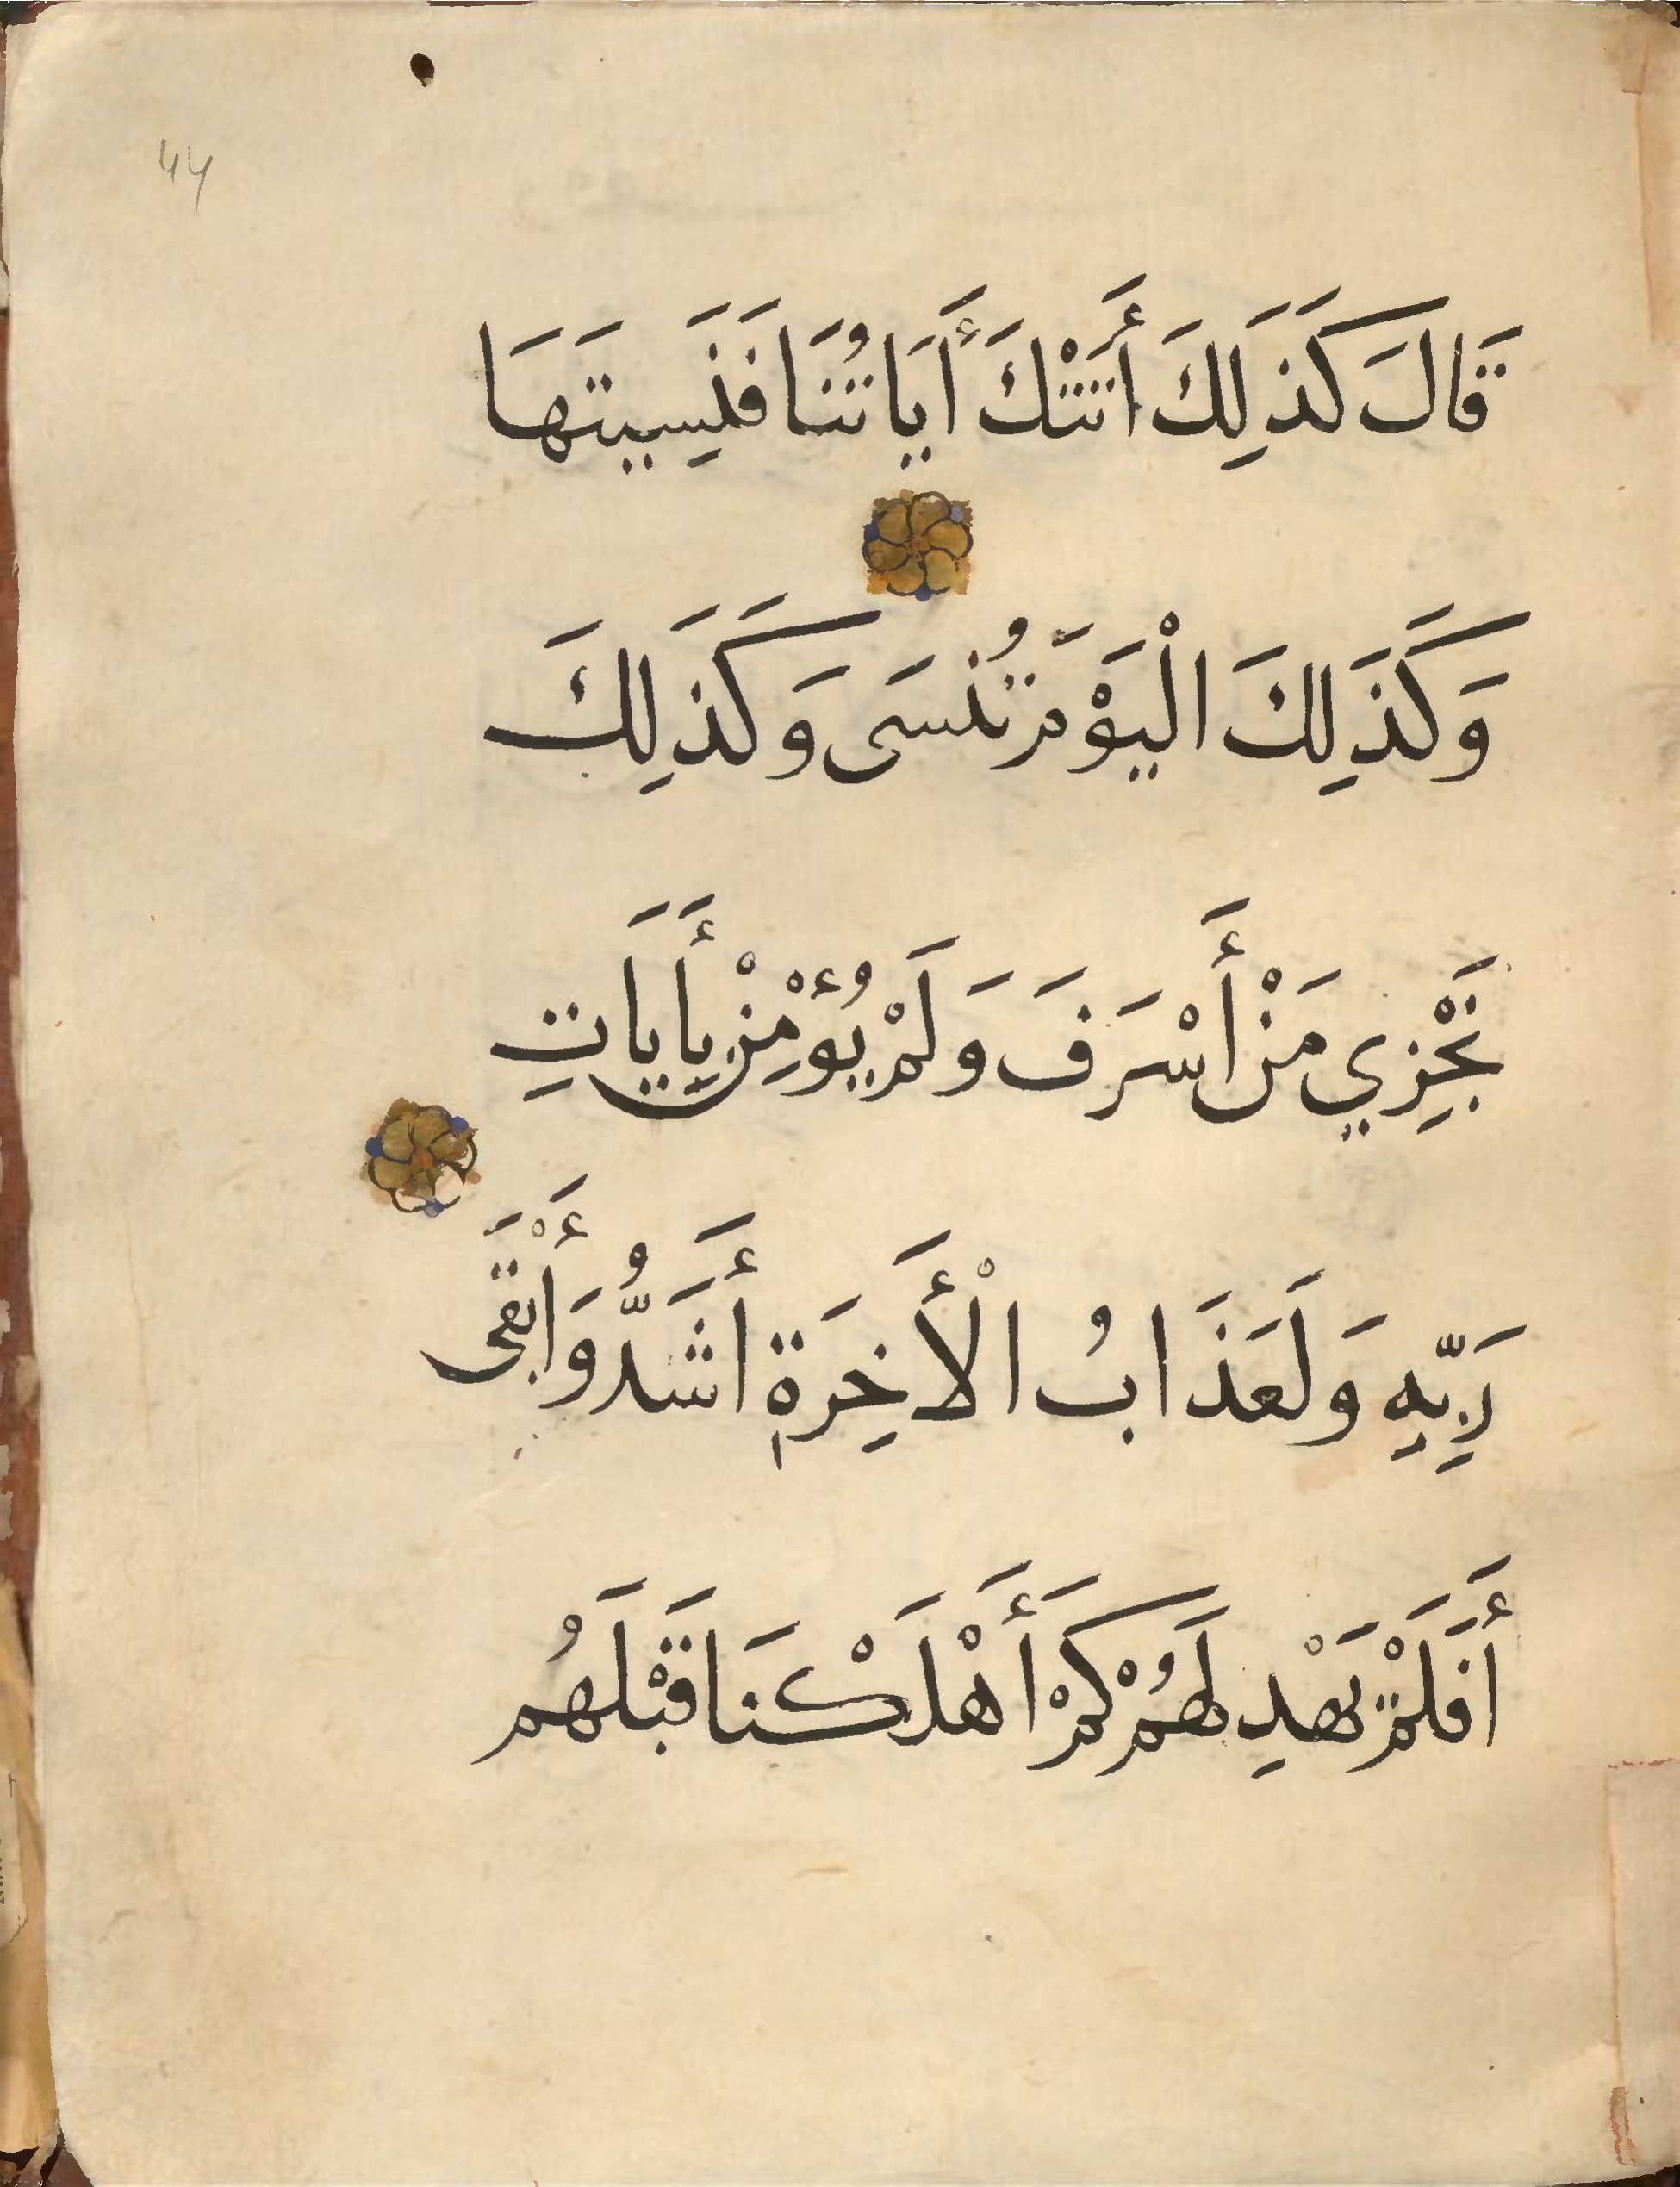 44
قَالَ كَذَلِكَ أَتَتْكَ أَيَاتُنَا فَنَسِيتَهَا
وَكَذَلِكَ الْيَوْمَ تُنْسَى وَكَذَلِكَ
نَجْزِي مَنْ أَسْرَفَ وَلَمْ يُؤْمِنْ بِأَيَاتِ
رَبِّهِ وَلَعَذَابُ الْأَخِرَةِ أَشَدُّ وَأَبْقَى
أَفَلَمْ يَهْدِ لَهُمْ كَمْ أَهْلَكْنَا قَبْلَهُم